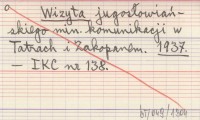 Wizyta jugosłowiań-
skiego min. komunikacji w
Tatrach i Zakopanem. 1937.
— IKC nr 138.